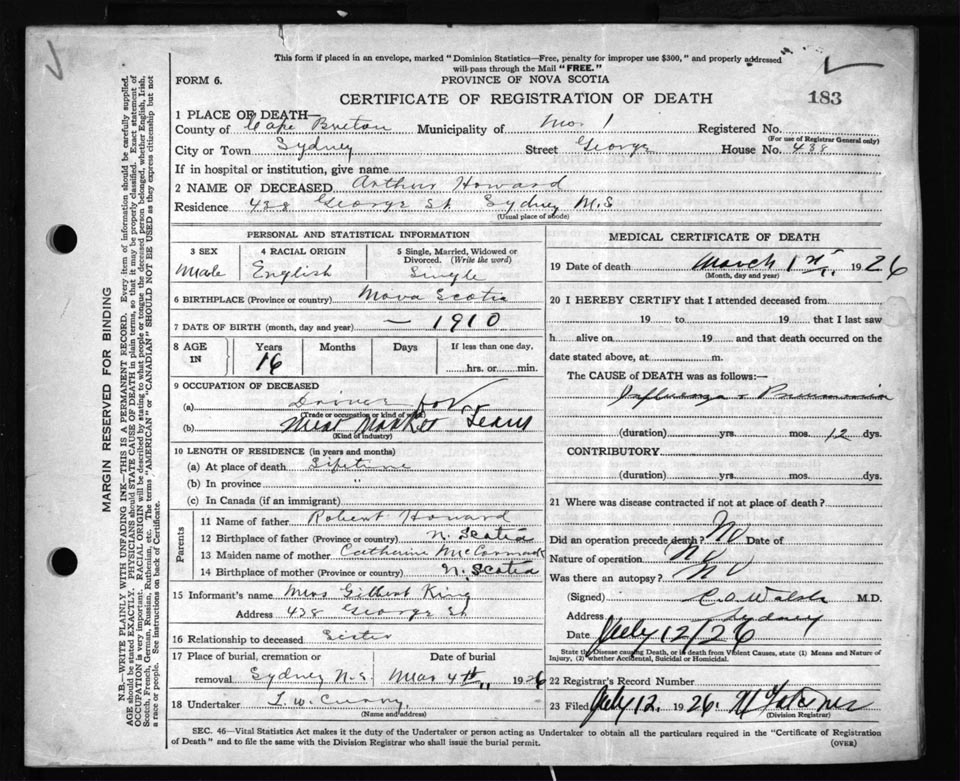 This form if placed in an envelope, marked "Dominion Statistics—Free, penalty for improper use $300," and properly addressed
will pass through the Mail "FREE."
FORM 6.
PROVINCE OF NOVA SCOTIA
CERTIFICATE OF REGISTRATION OF DEATH
183
1 PLACE OF DEATH—
County of Cape Breton Municipality of No. 1 Registered No.
(For use of Registrar General only)
City or Town Sydney Street George House No. 438
If in hospital or institution, give name
2 NAME OF DECEASED Arthur Howard
Residence 438 George St Sydney N.S
(Usual place of abode)
PERSONAL AND STATISTICAL INFORMATION
3 SEX
Male
4 RACIAL ORIGIN
English
5 Single, Married, Widowed or
Divorced. (Write the word)
Single
6 BIRTHPLACE (Province or country) Nova Scotia
7 DATE OF BIRTH (month, day and year) — 1910
8 AGE IN
Years Months Days If less than one day,
16 hrs. or min.
9 OCCUPATION OF DECEASED
(a) Driver for
(Trade or occupation or kind of work)
(b) Meat Market Team
(Kind of industry)
10 LENGTH OF RESIDENCE (in years and months)
(a) At place of death Lifetime
(b) In province "
(c) In Canada (if an immigrant)
Parents
11 Name of father Robert Howard
12 Birthplace of father (Province or country) N. Scotia
13 Maiden name of mother Catherine McCormack
14 Birthplace of mother (Province or country) N. Scotia
15 Informant's name Mrs Gilbert King
Address 438 George St
16 Relationship to deceased Sister
17 Place of burial, cremation or removal Sydney N.S. Date of burial Mar 4th 1926
18 Undertaker T. W. Curry
(Name and address)
MEDICAL CERTIFICATE OF DEATH
19 Date of death March 1st, 1926
(Month, day and year)
20 I HEREBY CERTIFY that I attended deceased from
19 to 19 that I last saw
h alive on 19 and that death occurred on the
date stated above, at m.
The CAUSE of DEATH was as follows:—
Influenza + Pneumonia
(duration) yrs. mos. 12 dys.
CONTRIBUTORY
(duration) yrs. mos. dys.
21 Where was disease contracted if not at place of death?
Did an operation precede death? No Date of
Nature of operation No
Was there an autopsy? No
(Signed) C.O. Walsh M.D.
Address Sydney
Date July 12/26
State the Disease causing Death, or in death from Violent Causes, state (1) Means and Nature of
Injury, (2) whether Accidental, Suicidal or Homicidal.
22 Registrar's Record Number
23 Filed July 12, 1926.
(Division Registrar)
SEC. 46—Vital Statistics Act makes it the duty of the Undertaker or person acting as Undertaker to obtain all the particulars required in the "Certificate of Registration
of Death" and to file the same with the Division Registrar who shall issue the burial permit.
(OVER)
MARGIN RESERVED FOR BINDING
N.B.—WRITE PLAINLY WITH UNFADING INK—THIS IS A PERMANENT RECORD. Every item of information should be carefully supplied.
AGE should be stated EXACTLY. PHYSICIANS should STATE CAUSE OF DEATH in plain terms, so that it may be properly classified. Exact statement of
OCCUPATION is very important. RACIAL ORIGIN will be described by stating to what people or tongue the deceased person belonged, whether English, Irish,
Scotch, French, German, Russian, Ruthenian, etc. The terms "AMERICAN" or "CANADIAN" SHOULD NOT BE USED as they express citizenship but not
a race or people. See instructions on back of Certificate.